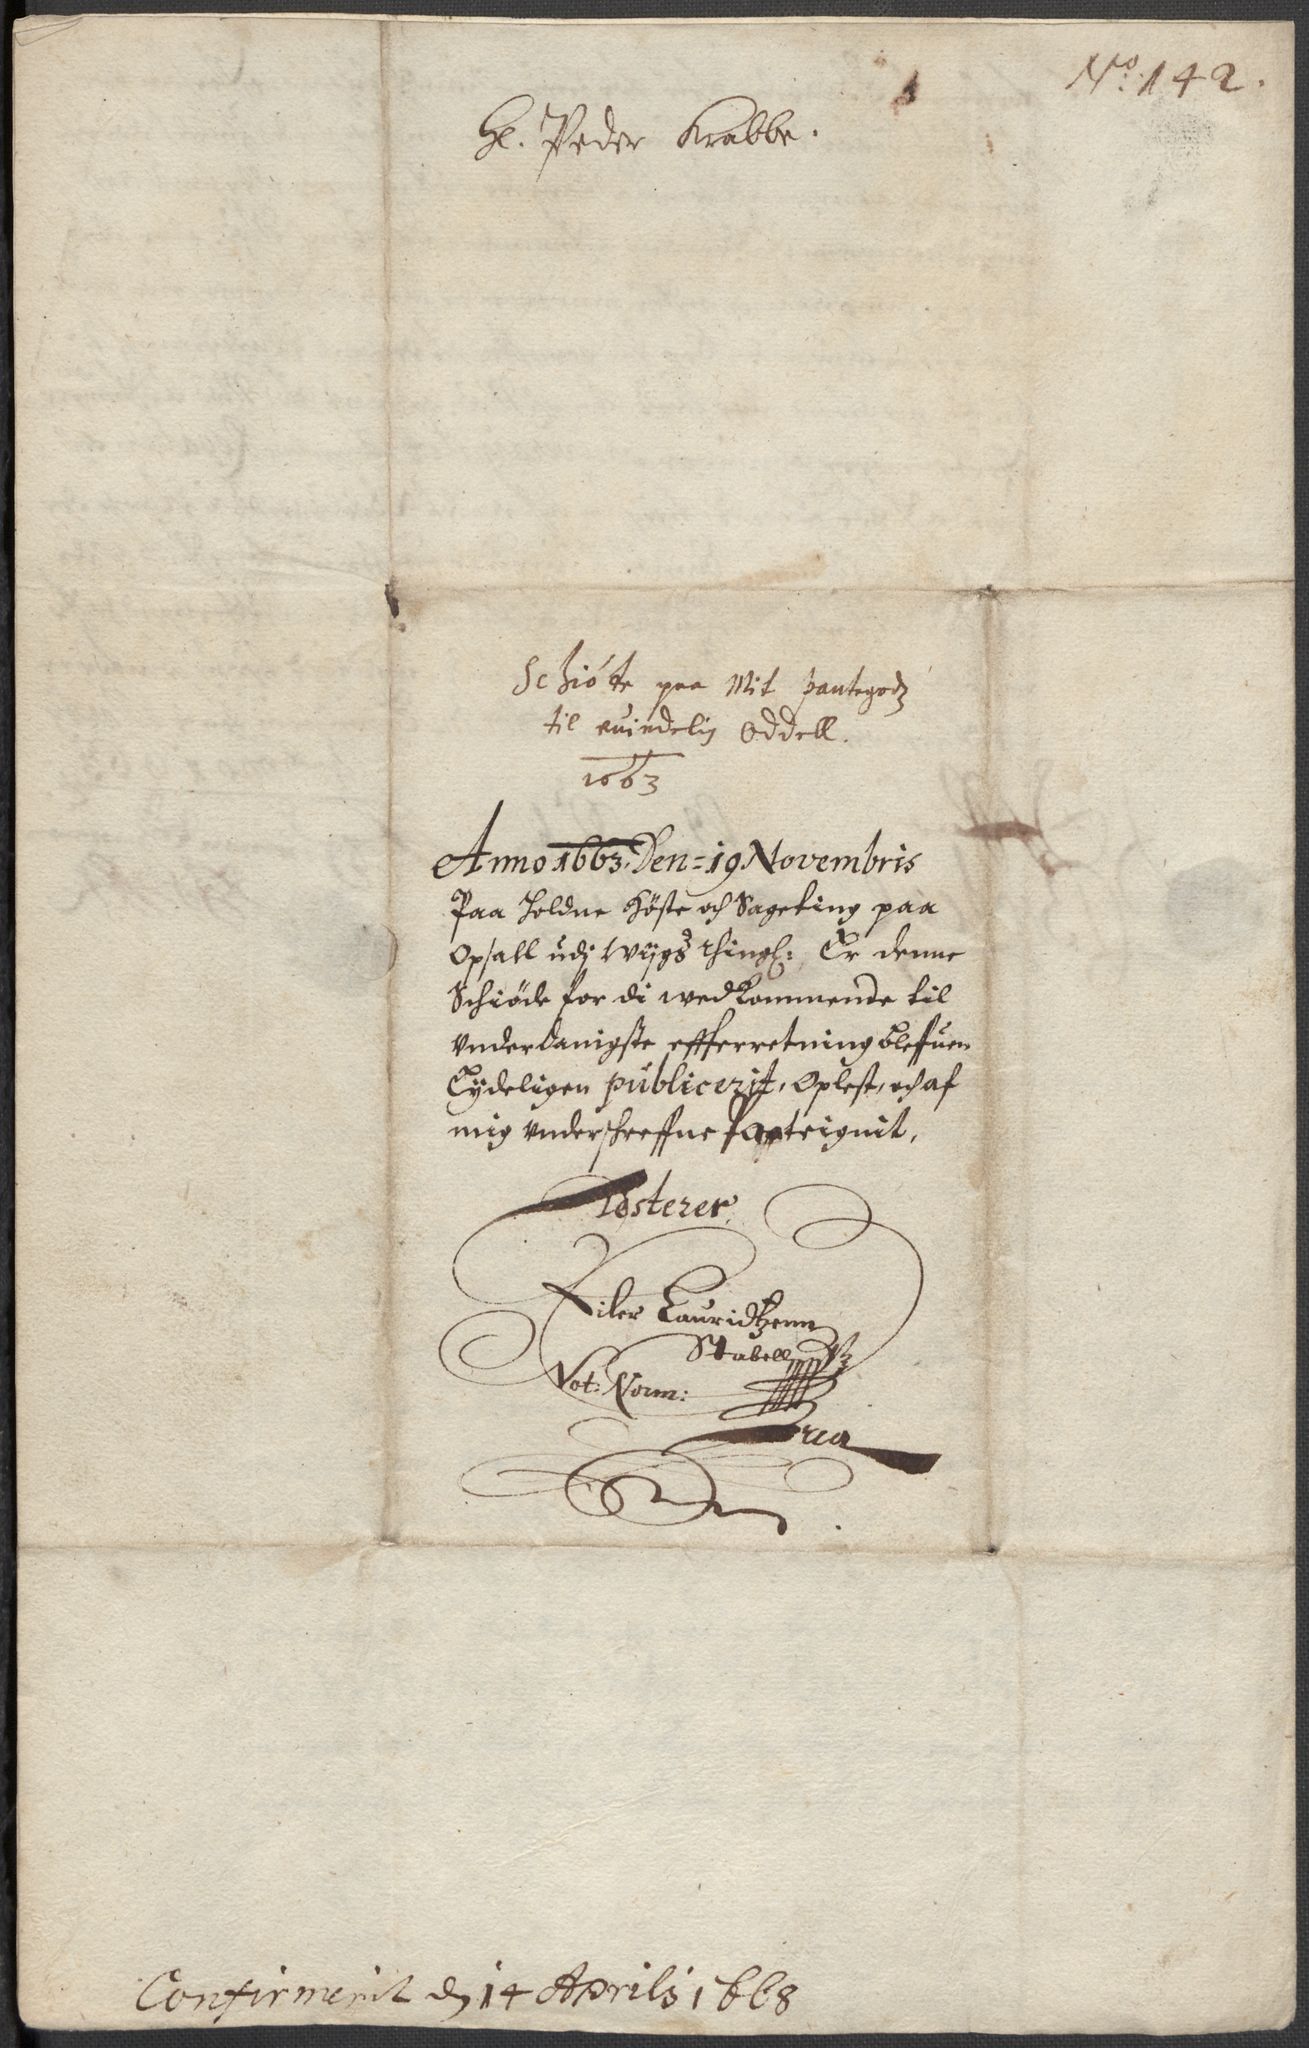 No: 142.
H. Peder Krabbe.
Schiöte paa Mit pantegodz
til euindelig Oddell.
1663
Anno 1663. Den = 19 Novembris
Paa holdne Höste och Sageting paa
Opsall udj Wijgs thingl: Er denne
Schiöde for di wedkommende til
vnderdanigste effterretning blefuen
Tydeligen publicerit, Oplest, och af
mig vnderschreffne paateignit,
Testerer
Eiler Lauridtzenn
Stabell
Not: Norm:
Confirmerit d 14 Aprilis 1668